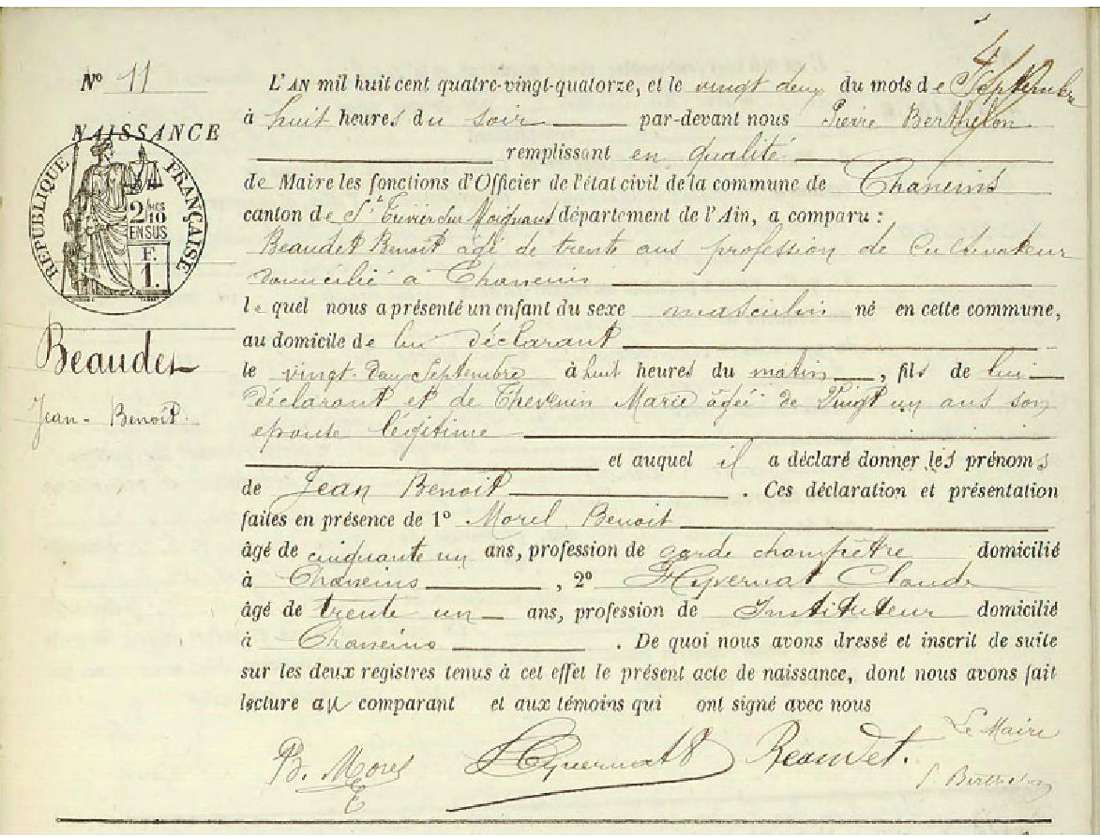 4
N° 11
L'AN mil huit cent quatre-vingt-quatorze, et le vingt deux du mois de Septembre
à huit heures du soir par-devant nous Pierre Berthelon
NAISSANCE
remplissant en qualité
de Maire les fonctions d'Officier de l'état civil de la commune de Chaneins
canton de St Trivier sur Moignans département de l'Ain, a comparu :
RÉPUBLIQUE FRANÇAISE
2/10 EN SUS
F. 1.
Beaudet Benoit agé de trente ans profession de Cultivateur
domicilié à Chaneins
le quel nous a présenté un enfant du sexe masculin né en cette commune,
au domicile de lui déclarant
Beaudet
le vingt-deux Septembre à huit heures du matin, fils de lui
Jean-Benoît.
déclarant et de Thevenin Marie âgée de Vingt un ans son
épouse légitime
et auquel il a déclaré donner les prénoms
de Jean Benoit. Ces déclaration et présentation
faites en présence de 1° Morel Benoit
âgé de cinquante un ans, profession de garde champêtre domicilié
à Chaneins, 2° Hyvernat Claude
âgé de trente un ans, profession de Instituteur domicilié
à Chaneins. De quoi nous avons dressé et inscrit de suite
sur les deux registres tenus à cet effet le présent acte de naissance, dont nous avons fait
lecture au comparant et aux témoins qui ont signé avec nous
Le Maire
B. Morel Hyvernat Beaudet.
P. Berthelon